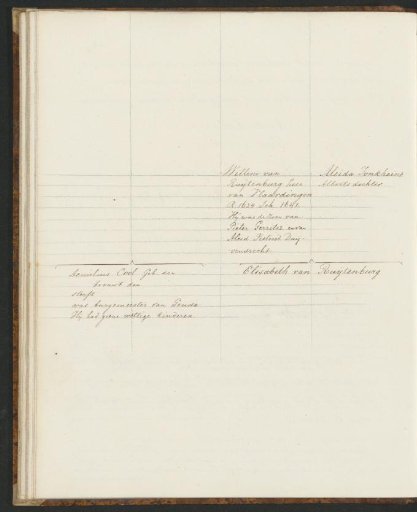 Willem van
Ruytenburg heer
van Vlaardingen
R. 1634 Sch. 1641.
Hij was de Zoon van
Pieter Gerritsz en van
Aleid Huibert Duy-
vendrecht
Aleida Jonkheint
Alberts dochter
Cornelius Cool Geb. den
trouwt den
sterft
was burgemeester van Gouda
Hij had geene wettige kinderen
Elisabeth van Ruytenburg